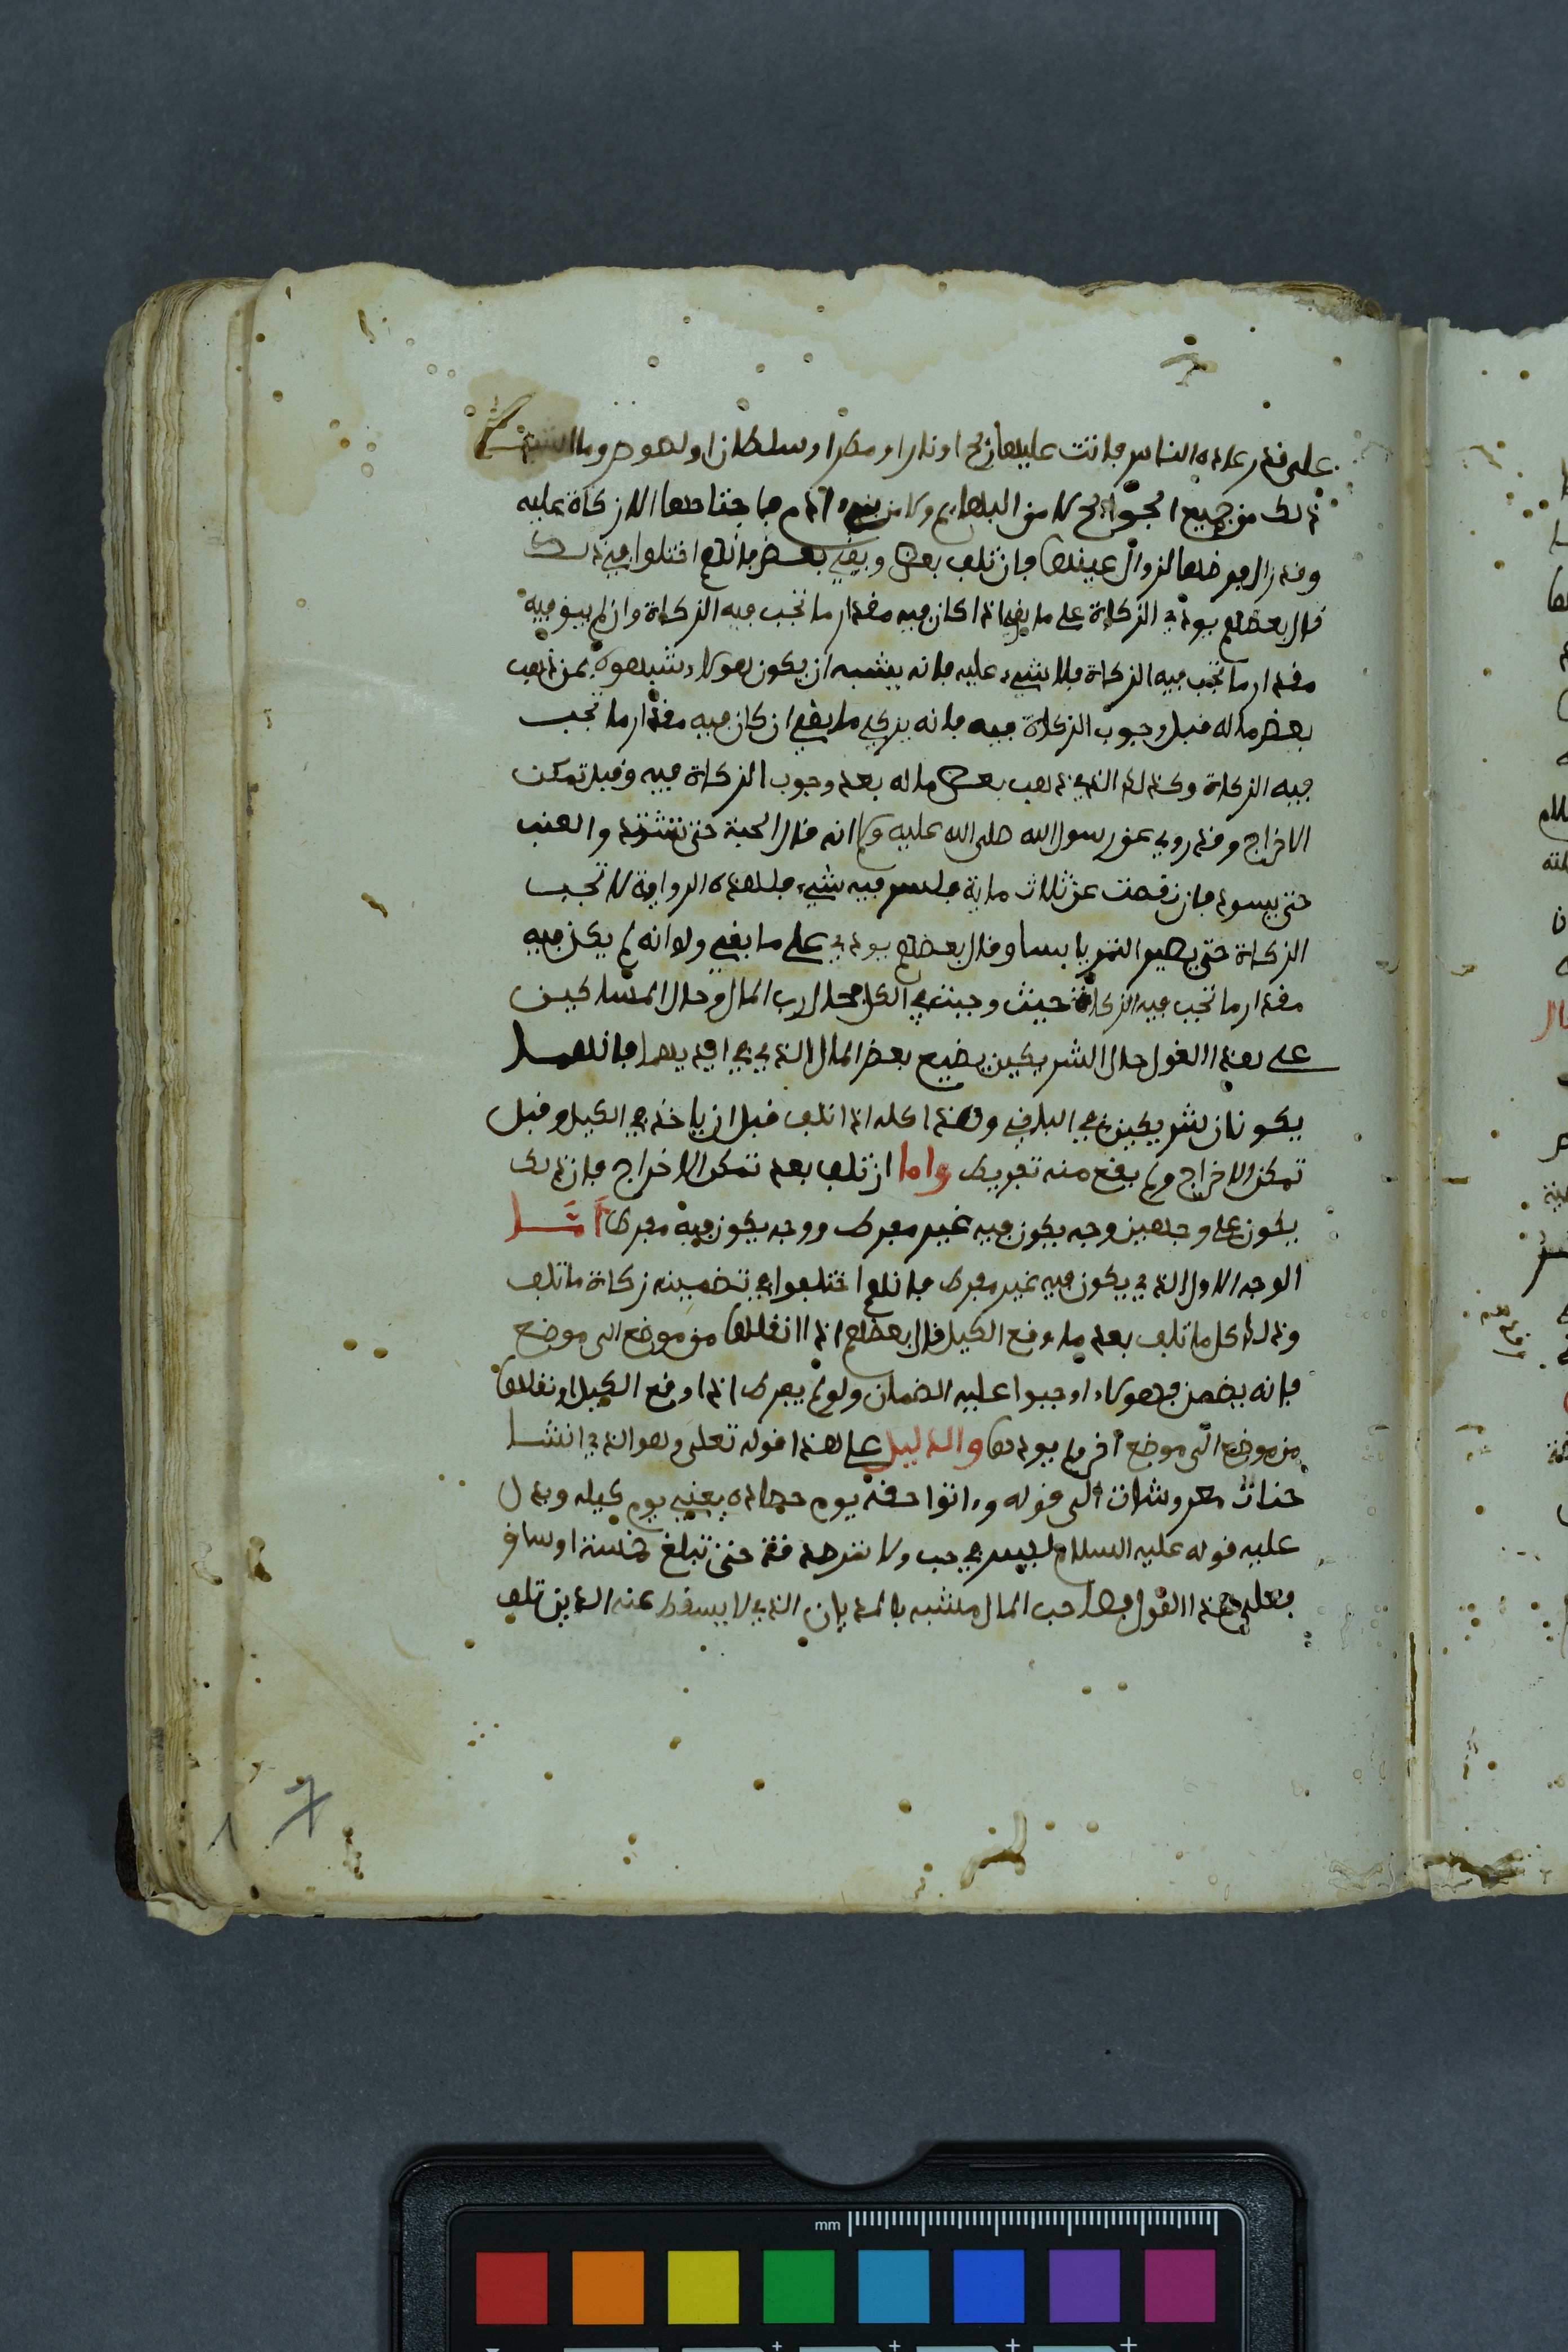 على قدر عادة الناس فاتت عليها ريح او نار او مطر او سلطان او لصوص وما اشبه
ذلك من جميع الجوائح لا من البهائم ولا من بني ءادم فاجتاحها الا زكاة عليه
وقد زال فرضها لزوال عينها فان تلف بعض وبقي بعض فانهم اختلفوا في ذلك
قال بعضهم يودي الزكاة على ما بقي اذا كان فيه مقدار ما تجب فيه الزكاة وان لم يبق فيه
مقدار ما تجب فيه الزكاة فلا شيء عليه فانه يشبه ان يكون هولاء شبهوه بمن ذهب
بعض ماله قبل وجوب الزكاة فيه فانه يزكي ما بقي ان كان فيه مقدار ما تجب
فيه الزكاة وكذلك الذي ذهب بعض ماله بعد وجوب الزكاة فيه وقبل تمكن
الاخراج وقد روي عن رسول الله صلى الله عليه وسلم انه قال الحبة حتى تشتد والعنب
حتى يسود فان نقصت عن ثلاث ماية فليس فيه شيء فلهذه الرواية لا تجب
الزكاة حتى يصير التمر يابسا وقال بعضهم يودي على ما بقي ولو انه لم يكن فيه
مقدار ما تجب فيه الزكاة حيث وجبت في الكل فحال رب المال وحال المساكين
على هذا القول حال الشريكين يضيع بعض المال الذي في ايديهما فانهما
يكونان شريكين في الباقي وهذا كله اذا تلف قبل ان ياخذ في الكيل وقبل
تمكن الاخراج ولم يقع منه تفريط واما ان تلف بعد تمكن الاخراج فان ذلك
يكون على وجهين وجه يكون فيه غير مفرط ووجه يكون فيه مفرط اما
الوجه الاول الذي يكون فيه غير مفرط فانهم اختلفوا في تضمينه زكاة ما تلف
وذلك كل ما تلف بعد ما وقع الكيل قال بعضهم اذا نقلها من موضع الى موضع
فانه يضمن فهولاء اوجبوا عليه الضمان ولو لم يفرط اذا وقع الكيل او نقلها
من موضع الى موضع اخر لم يودها والدليل على هذا قوله تعلى وهو الذي انشا
جنات معروشات الى قوله وءاتوا حقه يوم حصاده يعني يوم كيله ويدل
عليه قوله عليه السلام ليس في حب ولا تمر صدقة حتى تبلغ خمسة اوساق
فعلى هذا القول فصاحب المال مشبه بالمديان الذي لا يسقط عنه الدين تلف